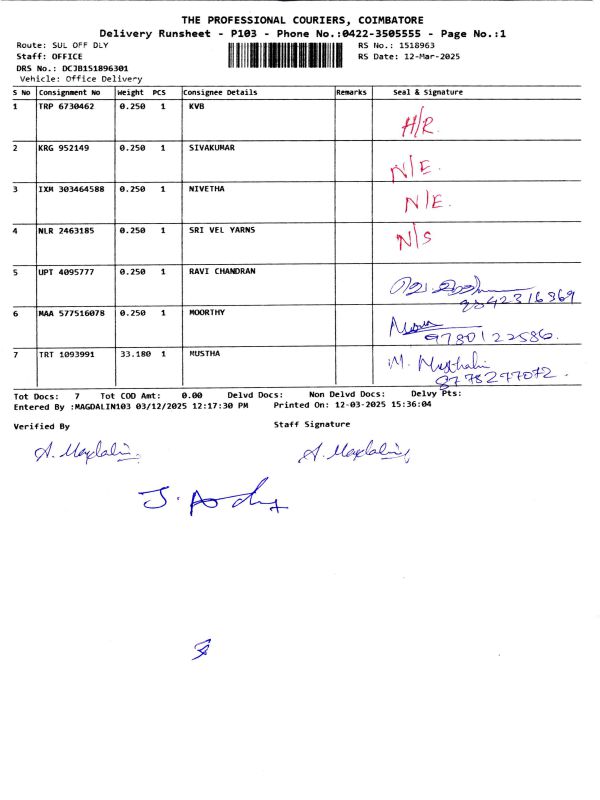 THE PROFESSIONAL COURIERS, COIMBATORE
Delivery Runsheet - P103 - Phone No.:0422-3505555 - Page No.:1
Route: SUL OFF DLY RS No.: 1518963
Staff: OFFICE RS Date: 12-Mar-2025
DRS No.: DCJB151896301
Vehicle: Office Delivery
S No Consignment No Weight PCS Consignee Details Remarks Seal & Signature
1 TRP 6730462 0.250 1 KVB H/R
2 KRG 952149 0.250 1 SIVAKUMAR N/E.
3 IXM 303464588 0.250 1 NIVETHA N/E.
4 NLR 2463185 0.250 1 SRI VEL YARNS N/S
5 UPT 4095777 0.250 1 RAVI CHANDRAN
9842316369
6 MAA 577516078 0.250 1 MOORTHY
9780122586.
7 TRT 1093991 33.180 1 MUSTHA M. Musthafa
8778277072.
Tot Docs: 7 Tot COD Amt: 0.00 Delvd Docs: Non Delvd Docs: Delvy Pts:
Entered By :MAGDALIN103 03/12/2025 12:17:30 PM Printed On: 12-03-2025 15:36:04
Verified By Staff Signature
A. Magdalin A. Magdalin